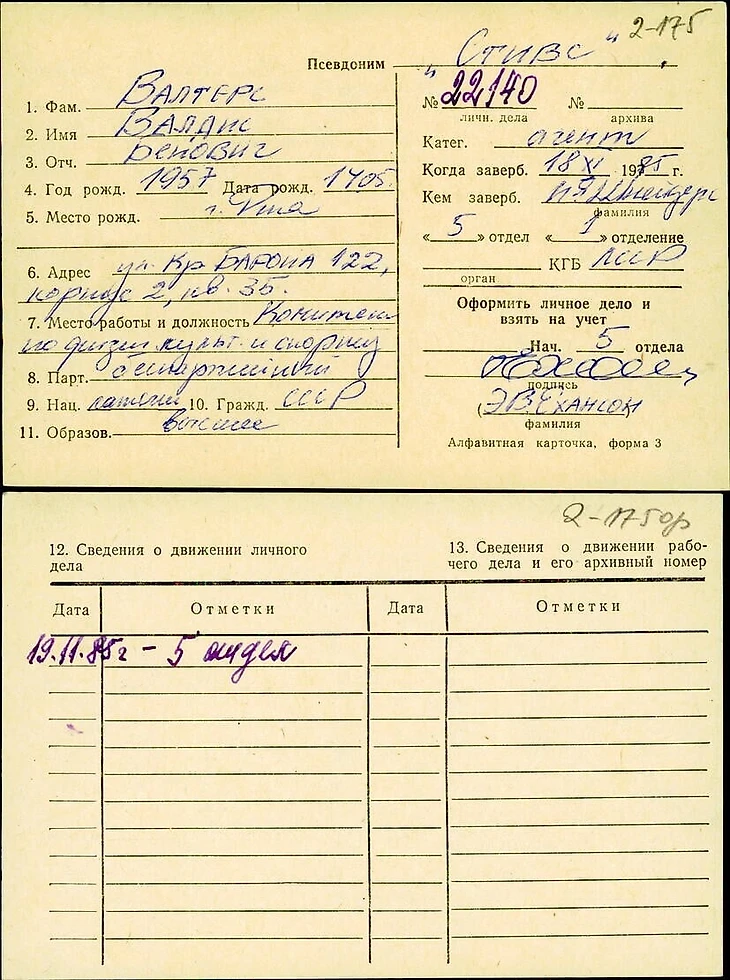 2-175
Псевдоним "Стивс"
1. Фам. Валтерс
2. Имя Валдис
3. Отч.
4. Год рожд. 1957 Дата рожд. 1405
5. Место рожд. г. Рига
6. Адрес ул. Кр. Барона 122,
корпус 2, кв. 35.
7. Место работы и должность Комитет
по физич. культ. и спорту
8. Парт. беспартийный
9. Нац. латыш 10. Гражд. СССР
11. Образов. высшее
№ 22140 №
личн. дела архива
Катег. агент
Когда заверб. 18 XI 1985 г.
Кем заверб.
фамилия
« 5 » отдел « 1 » отделение
КГБ ЛССР
орган
Оформить личное дело и
взять на учет
Нач. 5 отдела
подпись
(Э.В. Юхансон)
фамилия
Алфавитная карточка, форма 3
2-175об
12. Сведения о движении личного
дела
13. Сведения о движении рабо-
чего дела и его архивный номер
Дата Отметки Дата Отметки
19.11.85г - 5 отдел